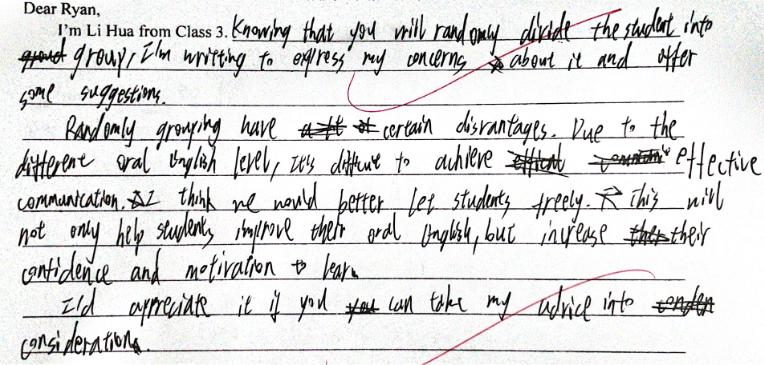 Dear Ryan,
I'm Li Hua from Class 3. Knowing that you will randomly divide the student into
group, I'm writting to express my concerns about it and offer
some suggestions.
Randomly grouping have certain disrantages. Due to the
different oral English level, it's difficult to achieve effective
communication. I think we would better let students freely. This will
not only help students improve their oral English, but increase their
confidence and motivation to learn
I'd appreciate it if you can take my advice into
consideration.